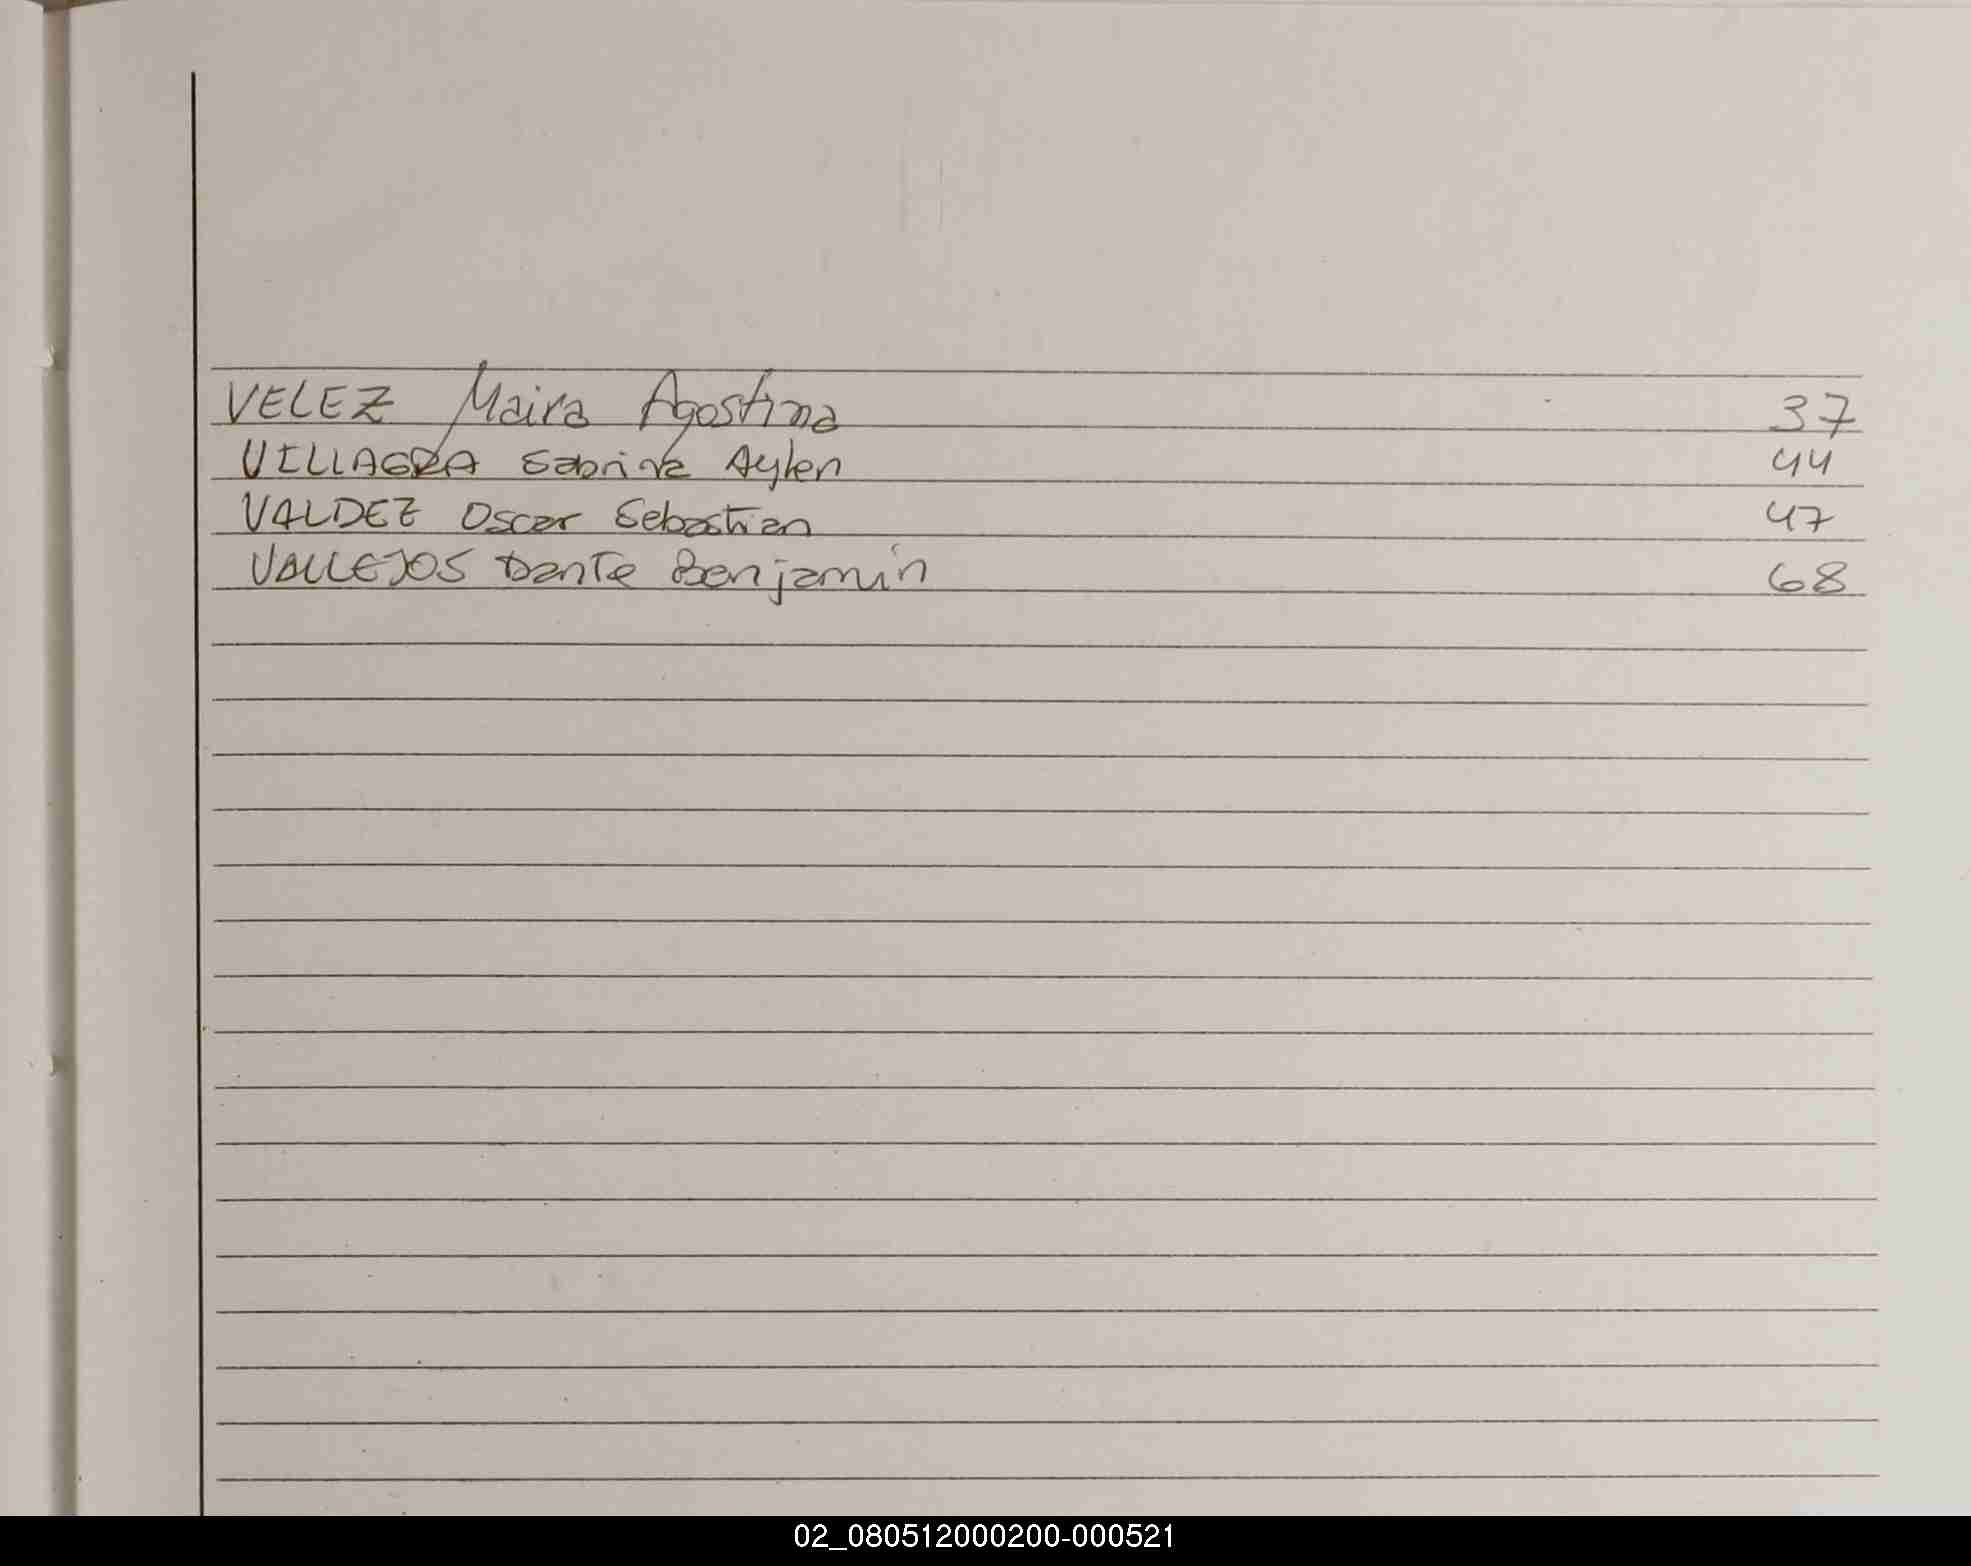 VELEZ Maira Agostina 37
VILLAGRA Sabrina Aylen 44
VALDEZ Oscar Sebastian 47
VALLEJOS Dante Benjamín 68
02_080512000200-000521